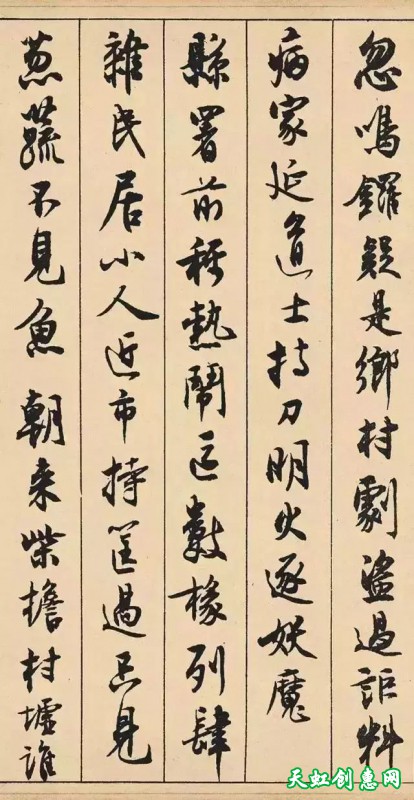 忽鳴鑼疑是鄉村劇盜過詎料
病家延道士持刀明火逐妖魔
縣署前稱熱鬧區數椽列肆
雜民居小人近市持筐過只見
葱蔬不見魚 朝来柴擔村墟誰
天虹创惠网